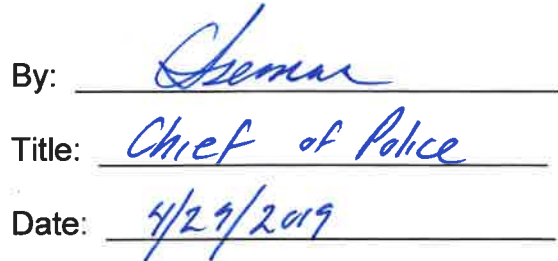 By:
Title: Chief of Police
Date: 4/29/2019